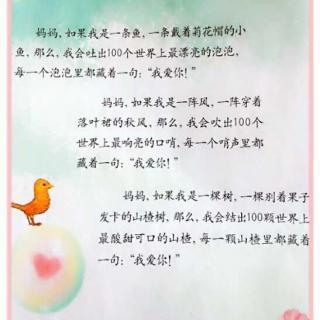 妈妈，如果我是一条鱼，一条戴着菊花帽的小
鱼，那么，我会吐出100个世界上最漂亮的泡泡，
每一个泡泡里都藏着一句：“我爱你！”
妈妈，如果我是一阵风，一阵穿着
落叶裙的秋风，那么，我会吹出100个
世界上最响亮的口哨，每一个哨声里都
藏着一句：“我爱你！”
妈妈，如果我是一棵树，一棵别着果子
发卡的山楂树，那么，我会结出100颗世界上
最酸甜可口的山楂，每一颗山楂里都藏着
一句：“我爱你！”